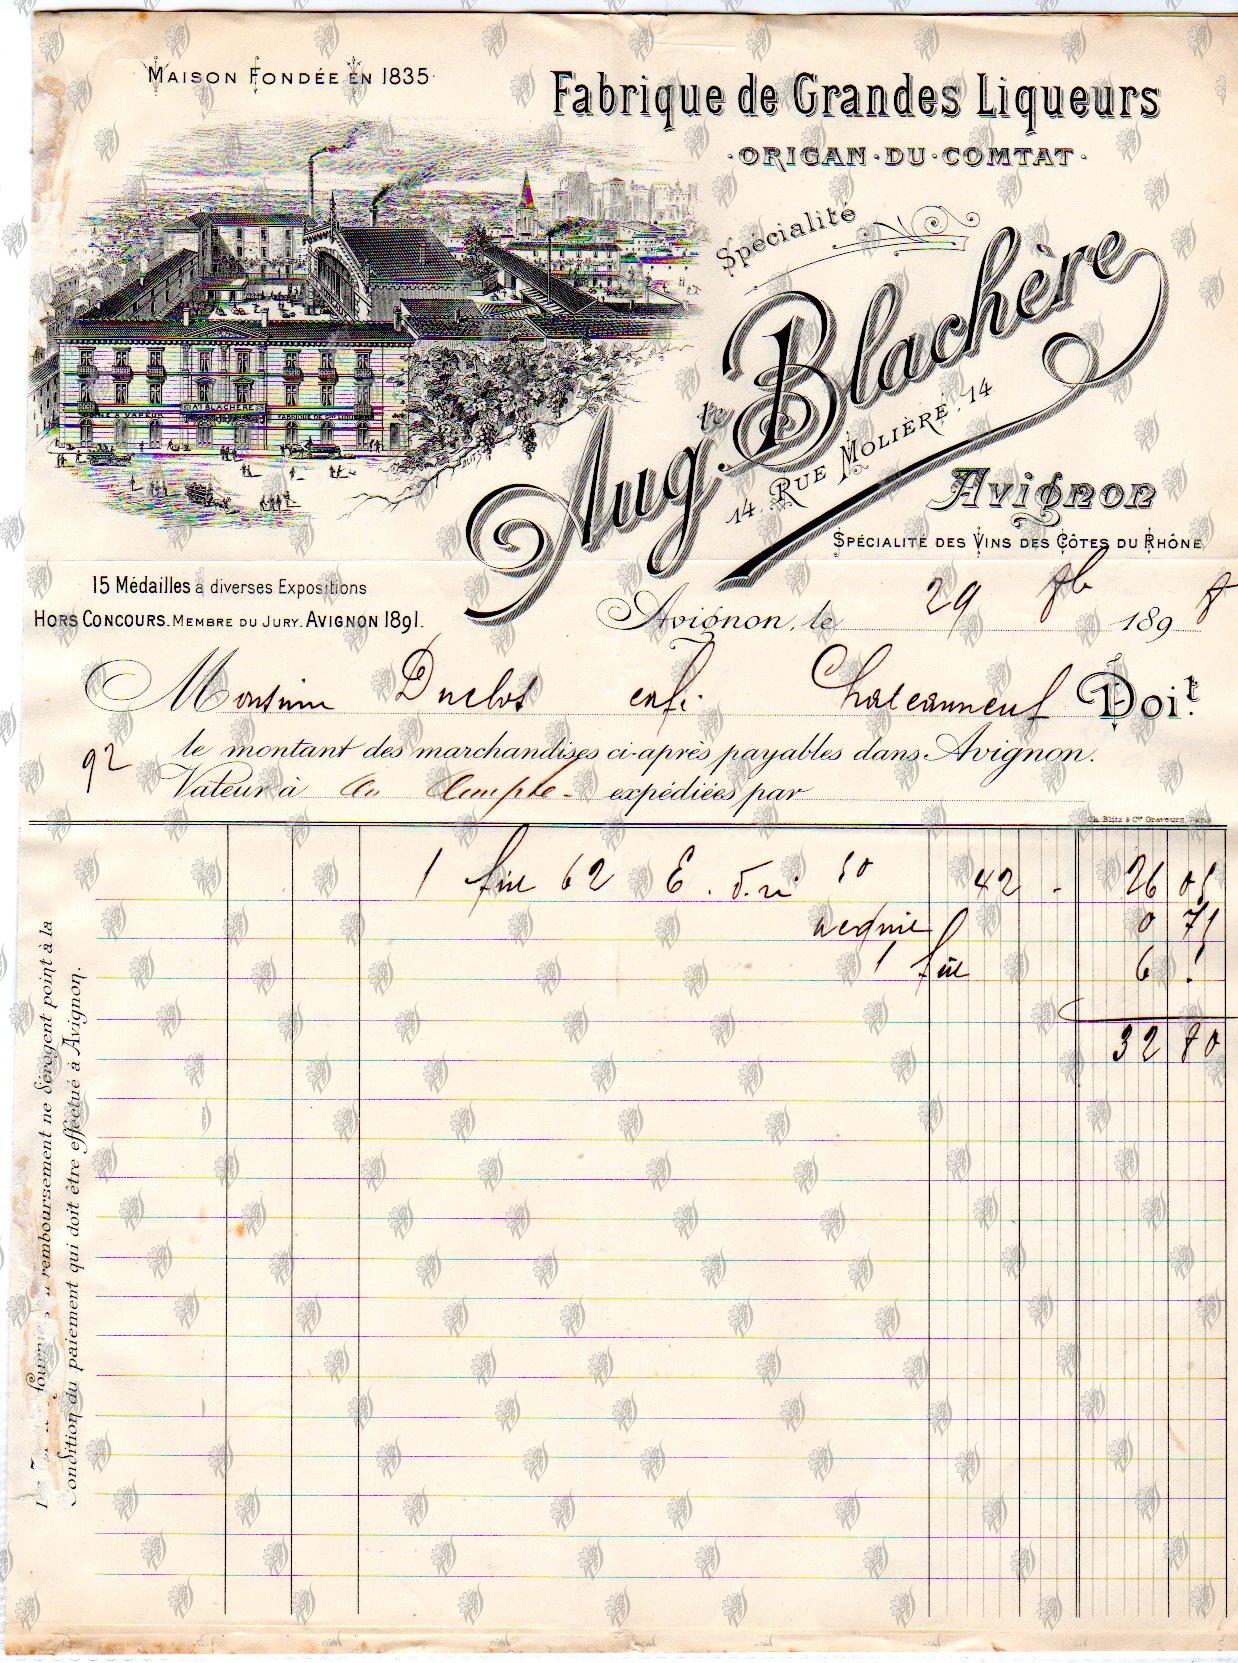 Maison Fondée en 1835
Fabrique de Grandes Liqueurs
·ORIGAN·DU·COMTAT·
Spécialité
Aug.te Blachère
14. Rue Molière. 14
Avignon
Spécialité des Vins des Côtes du Rhône
15 Médailles à diverses Expositions
Hors Concours. Membre du Jury. Avignon 1891.
Avignon, le 29 8b 1898
Monsieur Duclos Chateauneuf Doit.
le montant des marchandises ci-après payables dans Avignon.
92
Valeur à au Compte - expédiées par
Ch. Blitz & Cie Graveurs, Paris
1 fût 62 E. 50 42 - 26 05
acquit 0 75
1 fût 6 -
32 80
remboursement ne dérogent point à la
Condition du paiement qui doit être effectué à Avignon.